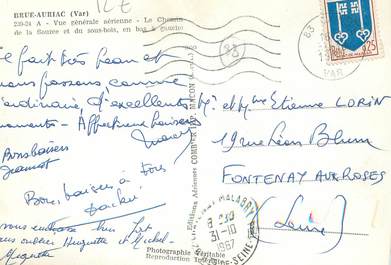 BRUE-AURIAC (Var)
239-24 A - Vue générale aérienne - Le Chemin
de la Source et du sous-bois, en bas à gauche
fait très beau et
passons comme
d'excellents
moments - Affectueux baisers
Bons baisers
Bons baisers à tous
vous embrasse bien fort
sans oublier Huguette et Michel
Huguette
Mr et Mme Etienne LORIN
19 rue Léon Blum
FONTENAY AUX ROSES
(Seine)
83
VAR
0,25
MALABRY
31-10
1967
SEINE
COMBIER IMP. MACON
Editions Aériennes
Photographie Véritable
Reproduction